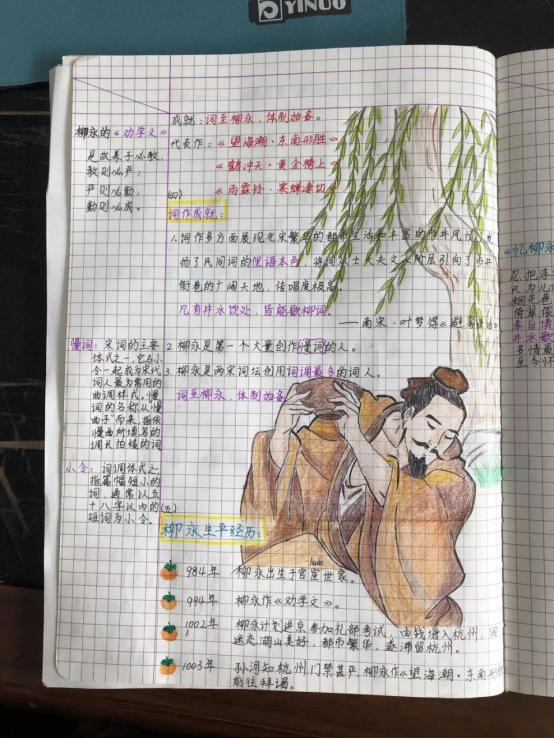 YINUO
成就：词至柳永，体制始备。
代表作：《望海潮·东南形胜》
《鹤冲天·黄金榜上》
《雨霖铃·寒蝉凄切》
柳永的《劝学文》
是故养子必教，
教则必严；
严则必勤，
勤则必成。
(四)
词作成就：
1.词作多方面展现北宋繁华的都市生活和丰富的市井风情，发
扬了民间词的俚语本色，将词从士大夫文人阶层引向了市井
街巷的广阔天地，传唱度极高。
凡有井水饮处，皆能歌柳词。
——南宋·叶梦得《避暑录话》
2.柳永是第一个大量创作慢词的人。
3.柳永是两宋词坛创用词调最多的词人。
词至柳永，体制始备
慢词：宋词的主要
体式之一，它与小
令一起成为宋代
词人最为常用的
曲调样式。慢
词的名称从"慢
曲子"而来，指依
慢曲所填写的
调长拍缓的词
小令：词调体式之一
指篇幅短小的
词，通常以五
十八字以内的
短词为小令。
(五)
柳永生平经历：
984年 柳永出生于官宦世家。
huàn
994年 柳永作《劝学文》。
1002年 柳永计划进京参加礼部考试，由钱塘入杭州，因
迷恋湖山美好，都市繁华，遂滞留杭州。
1003年 孙何知杭州，门禁甚严，柳永作《望海潮·东南形胜
前往拜谒。
《忆柳永